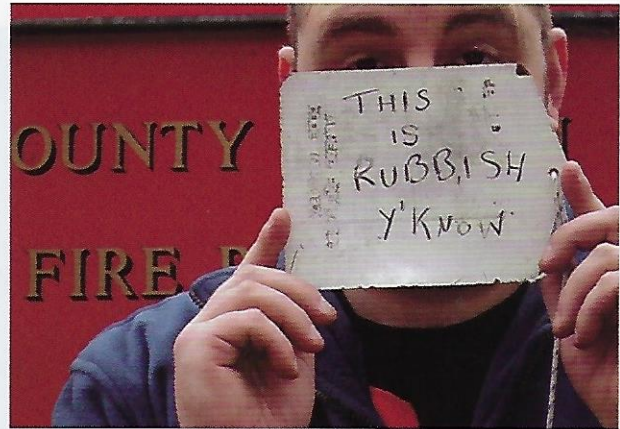 OUNTY
FIRE
THIS
IS
RUBBISH
Y'KNOW